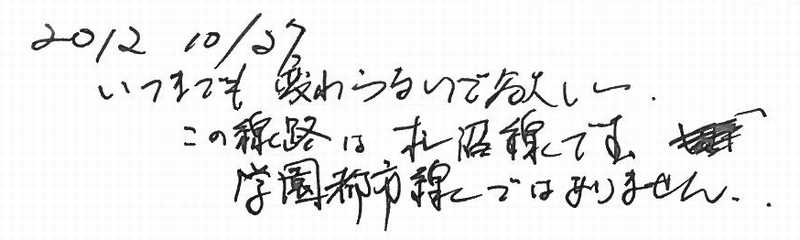 2012 10/27
いつまでも変わらないで欲しい.
この線路は札沼線です。
学園都市線ではありません..